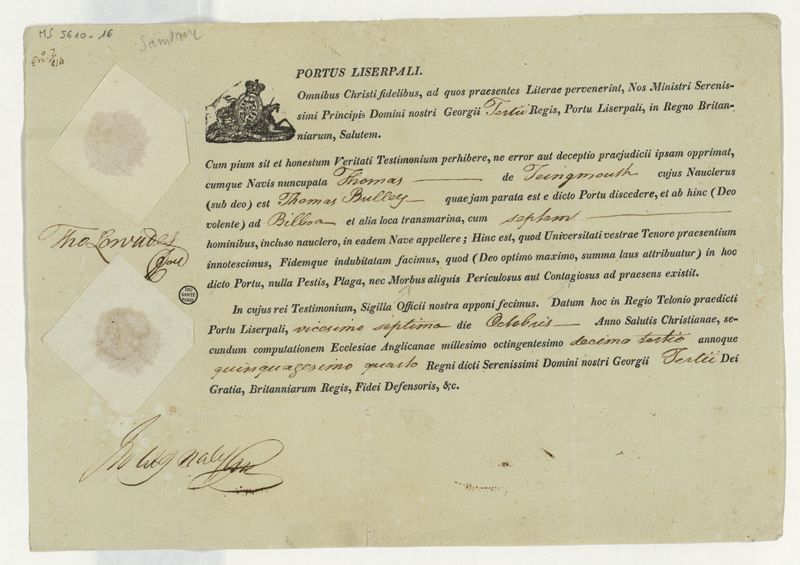 MS 5610-16
PORTUS LISERPALI.
Omnibus Christi fidelibus, ad quos praesentes Literae pervenerint, Nos Ministri Serenis-
simi Principis Domini nostri Georgii Tertii Regis, Portu Liserpali, in Regno Britan-
niarum, Salutem.
Cum pium sit et honestum Veritati Testimonium perhibere, ne error aut deceptio praejudicii ipsam opprimat,
cumque Navis nuncupata Thomas de Teingmouth cujus Nauclerus
(sub deo) est Thomas Bulley quae jam parata est e dicto Portu discedere, et ab hinc (Deo
volente) ad Bilboa et alia loca transmarina, cum septem
hominibus, incluso nauclero, in eadem Nave appellere; Hinc est, quod Universitati vestrae Tenore praesentium
innotescimus, Fidemque indubitatam facimus, quod (Deo optimo maximo, summa laus attribuatur) in hoc
dicto Portu, nulla Pestis, Plaga, nec Morbus aliquis Periculosus aut Contagiosus ad praesens existit.
In cujus rei Testimonium, Sigilla Officii nostra apponi fecimus. Datum hoc in Regio Telonio praedicti
Portu Liserpali, vicesimo septimo die Octobris Anno Salutis Christianae, se-
cundum computationem Ecclesiae Anglicanae millesimo octingentesimo decimo tertio annoque
quinquagesimo quarto Regni dicti Serenissimi Domini nostri Georgii Tertii Dei
Gratia, Britanniarum Regis, Fidei Defensoris, &c.